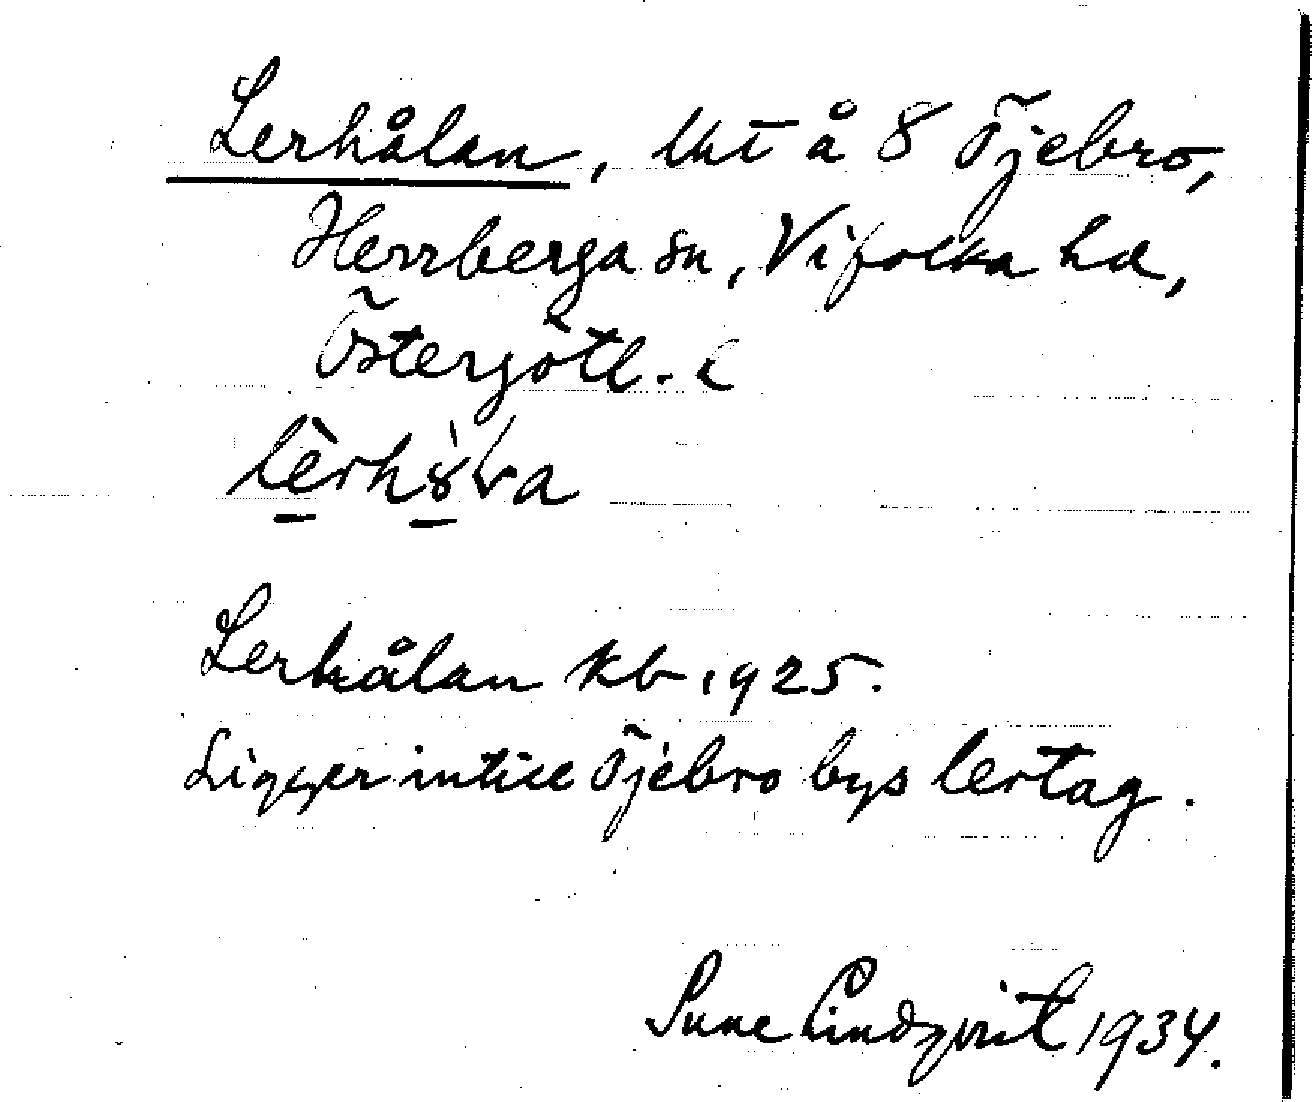 Lerhålan, lht å 8 Öjebro,
Herrberga sn, Vifolka hd,
Östergötl. l
Lerhålan kb 1925.
Ligger intill Öjebro bys lertag.
Sune Lindqvist 1934.